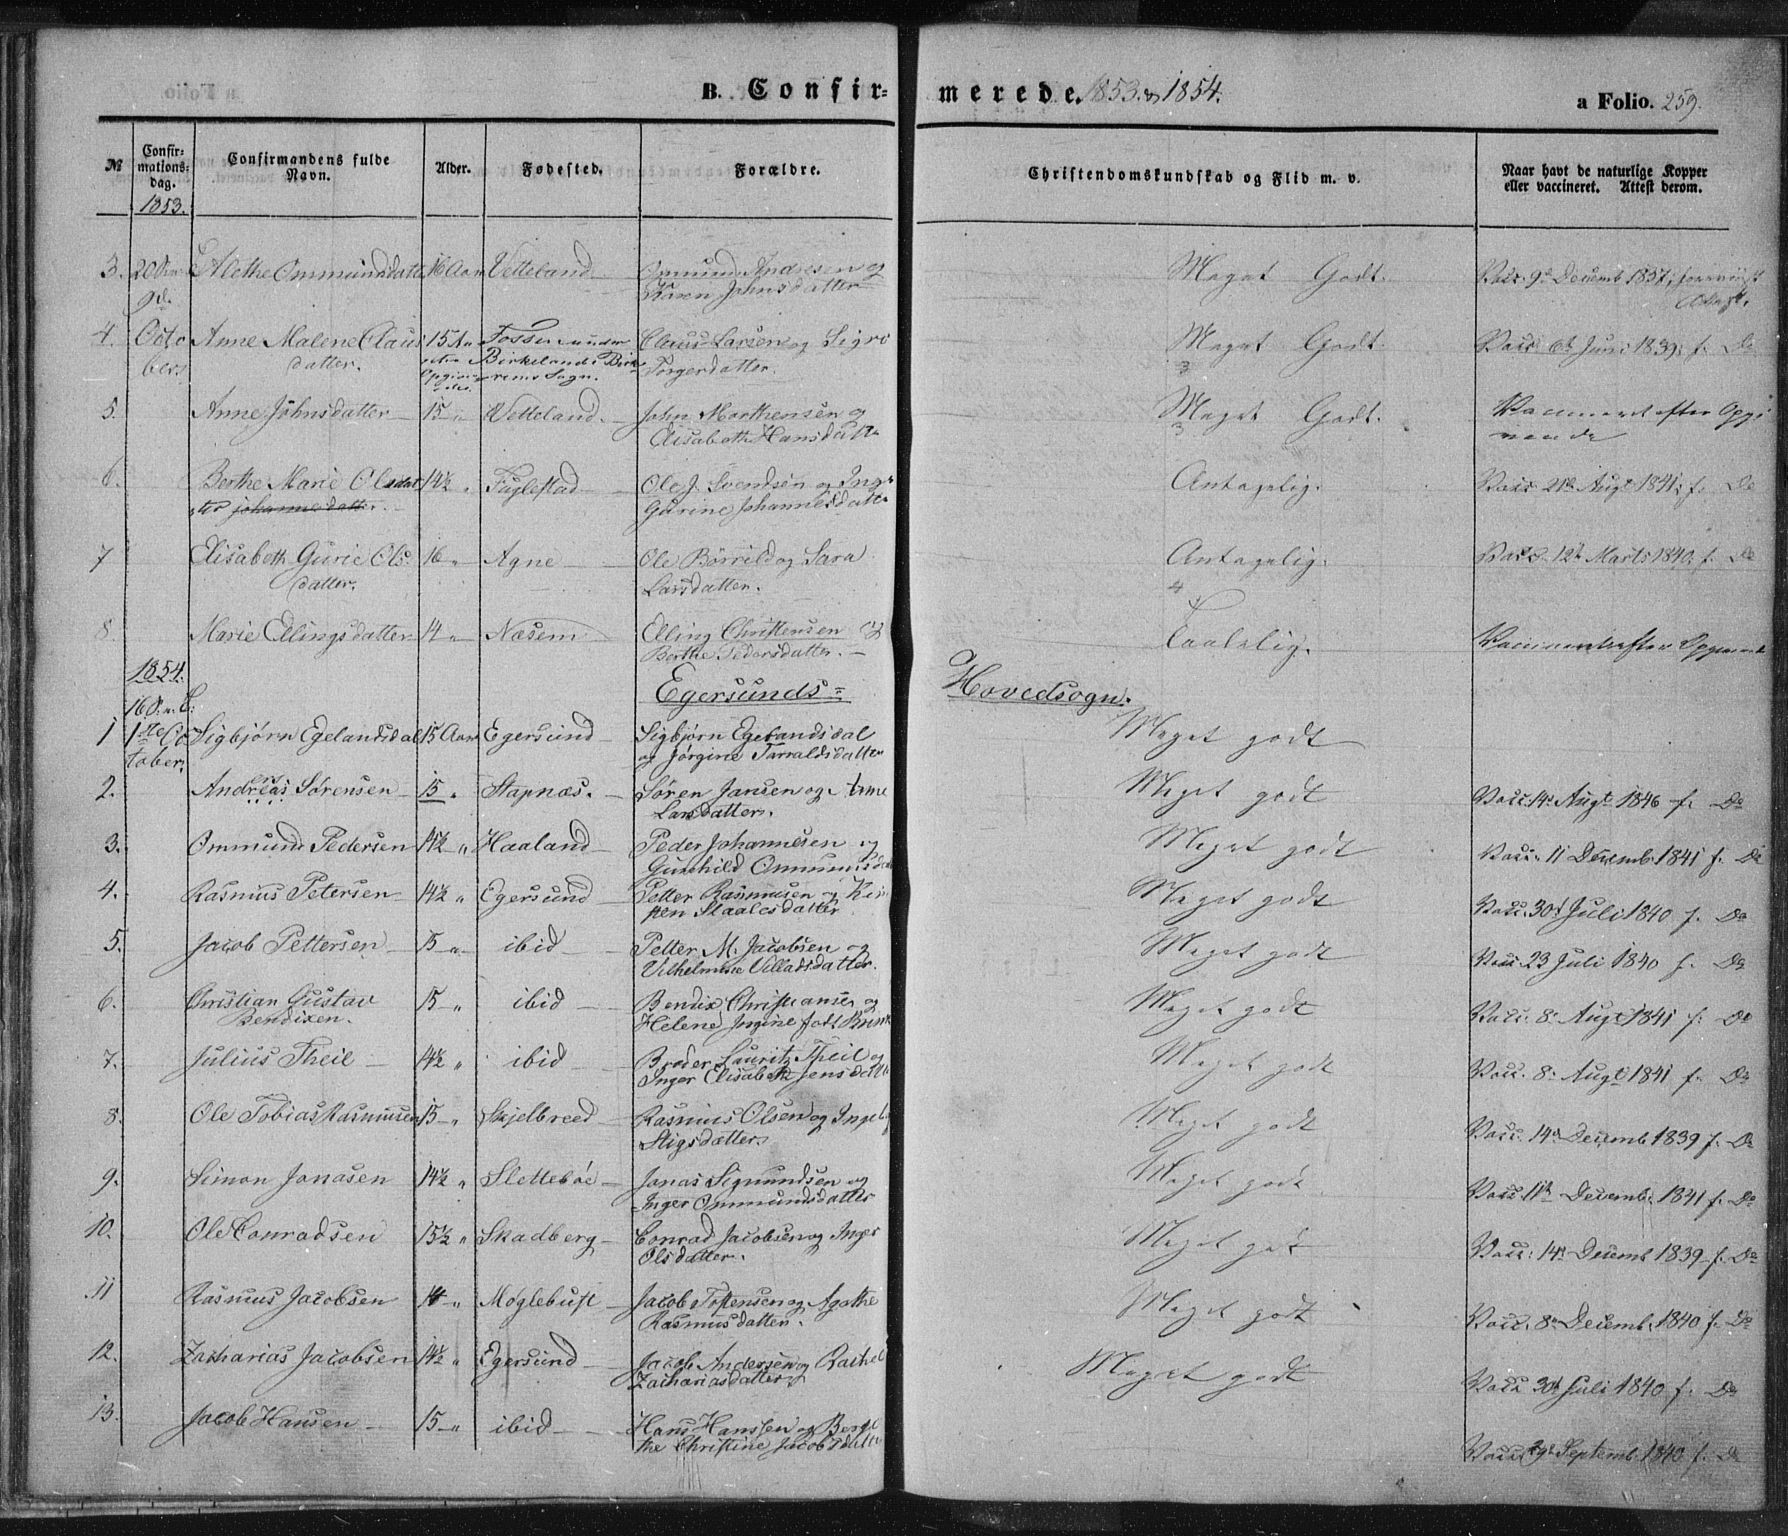 B. Confir= merede. 1853 & 1854. a Folio. 259.
№ Confir=mations=dag. 1853. Confirmandens fulde Navn. Alder. Fødested. Forældre. Christendomskundskab og Flid m. v. Naar havt de naturlige Kopper eller vaccineret. Attest derom.
3. Alethe Ommundsdatter 16 Aar Vetteland Omund Andresen og Meget Godt.
Karen Johnsdatter
4. Octobers Anne Malene Claus 15 Tosse under Claus Larsen og Sigri Meget Godt. Vacc. 6t Juni 1839 f. Do
datter. Birkelands Birk- Torgersdatter.
rems Sogn.
5. Anne Johnsdatter 15 " Vetteland. John Morthensen og Meget Godt. Vaccineret efter Opgi
Elisabeth Hansdatter vende
6. Berthe Marie Olsdat 14½ " Fuglestad Ole J. Svendsen og Inge Antagelig. Vacc 21de Augt 1841 f. Do
ter johannesdatter. Gurine Johannesdatter
7 Elisabeth Gurie Ols. 16 " Agne Ole Børrild og Sara Antagelig. Vacc 12t Marts 1840. f. Do
datter. Larsdatter.
8. Marie Ellingsdatter 14 " Næsem Elling Christensen og Taalelig. Vaccineret efter Opgivende
Berthe Pedersdatter.
1854.
Egersunds= Hovedsogn.
1 1ste October Sigbjørn Egelandsdal 15 Aar Egersund Sigbjørn Egelandsdal Meget godt
og Jørgine Tarraldsdatter
2. Andreas Sørensen 15 " Stapnæs. Søren Jansen og Anne Meget godt Vacc. 14d Augt 1846 f. Do
Larsdatter.
3. Ommund Pedersen 14½ " Haaland Peder Johannesen og Meget godt Vacc. 11 Decemb. 1841 f. Do
Gunhild Ommundsdat
4. Rasmus Petersen 14½ " Egersund Petter Rasmusen og Kir Meget godt Vacc. 30d Juli 1840 f. Do
sten Staalesdatter
5. Jacob Pettersen 15 " ibid Petter M. Jacobsen og Meget godt Vacc 23 Juli 1840 f. Do
Vilhelmine Villadsdatter.
6. Christian Gustav 15 " ibid Bendix Christiansen og Meget godt Vacc. 8d Augt 1841 f. Do
Bendixen. Helene Jørgine født
7. Julius Theil 14½ " ibid Broder Lauritz Theil og Meget godt Vacc. 8d Augt 1841 f. Do
Inger Elisabeth Jensdatter
8. Ole Tobias Rasmussen 15 " Skjelbreed Rasmus Olsen og Ingeb Meget godt Vacc. 14d Decemb. 1839 f. Do
Stigsdatter.
9. Simon Jonasen 14½ " Slettebøe Jonas Sigmundsen og Meget godt Vacc 11d Decemb. 1841 f. Do
Inger Ommundsdatter
10. Ole Conradsen 15½ " Skadberg Conrad Jacobsen og Inger Meget godt Vacc. 14d Decemb 1839 f. Do
Olsdatter.
11 Rasmus Jacobsen 14 " Møglebust Jacob Tostensen og Agathe Meget godt Vacc. 8d Decemb. 1840 f. Do
Rasmusdatter.
12. Zacharias Jacobsen 14½ " Egersund Jacob Andersen og Rachel Meget godt Vacc 30d Juli 1840 f. Do
Zachariasdatter
13. Jacob Hansen 15 " ibid Hans Hanssen og Berge Vacc 29d Septemb. 1840 f. Do
the Christine Jacobsdatter